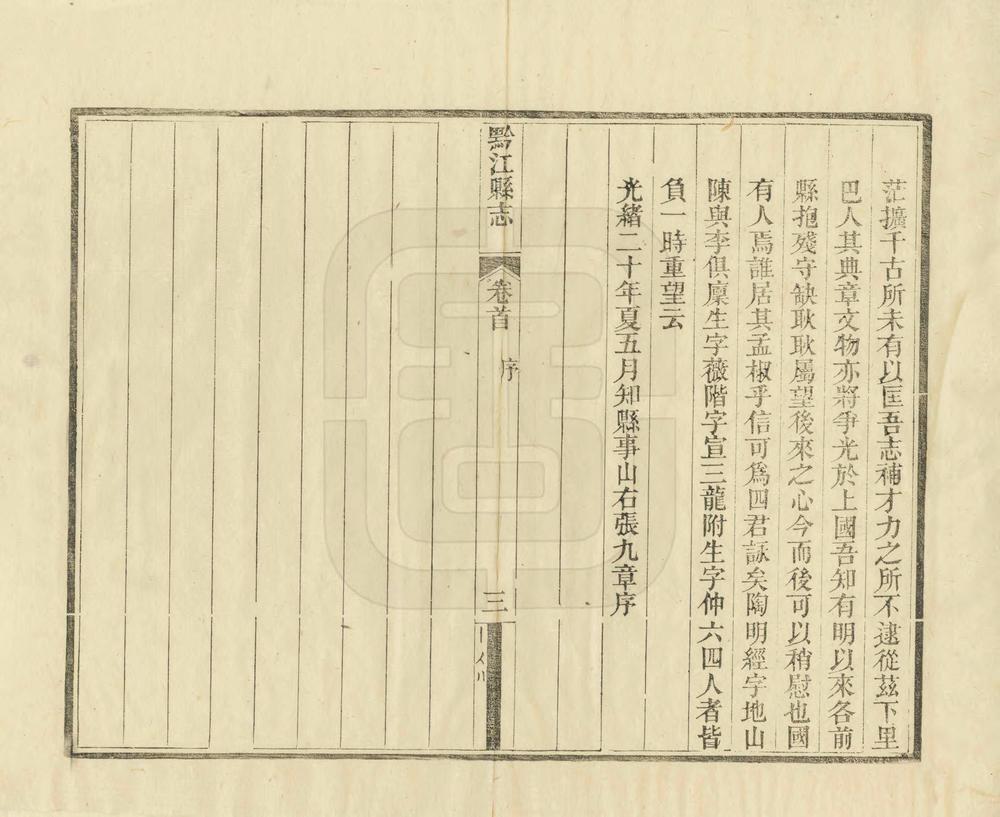 茫擴千古所未有以匡吾志補才力之所不逮從茲下里
巴人其典章文物亦將爭光於上國吾知有明以來各前
縣抱殘守缺耿耿屬望後來之心今而後可以稍慰也國
有人焉誰居其孟椒乎信可為四君詠矣陶明經字地山
陳與李俱廩生字薇階字宣三龍附生字仲六四人者皆
負一時重望云
光緒二十年夏五月知縣事山右張九章序
黔江縣志
卷首
序
三